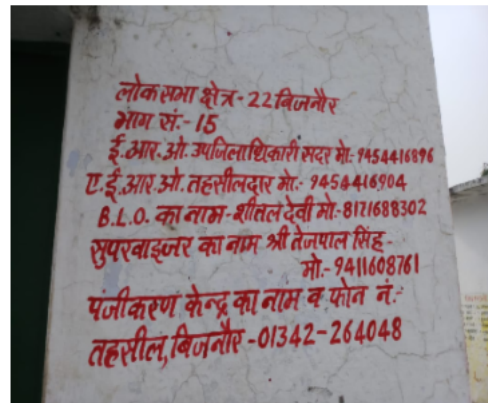 लोक सभा क्षेत्र- 22 बिजनौर
भाग सं.- 15
ई.आर.ओ. उपजिलाधिकारी सदर मो:- 9454416896
ए.ई.आर.ओ. तहसीलदार मो:- 9454416904
B.L.O. का नाम- शीतल देवी मो:- 8171688302
सुपरवाइजर का नाम श्री तेजपाल सिंह-
मो.- 9411608761
पंजीकरण केन्द्र का नाम व फोन नं:-
तहसील, बिजनौर -01342-264048